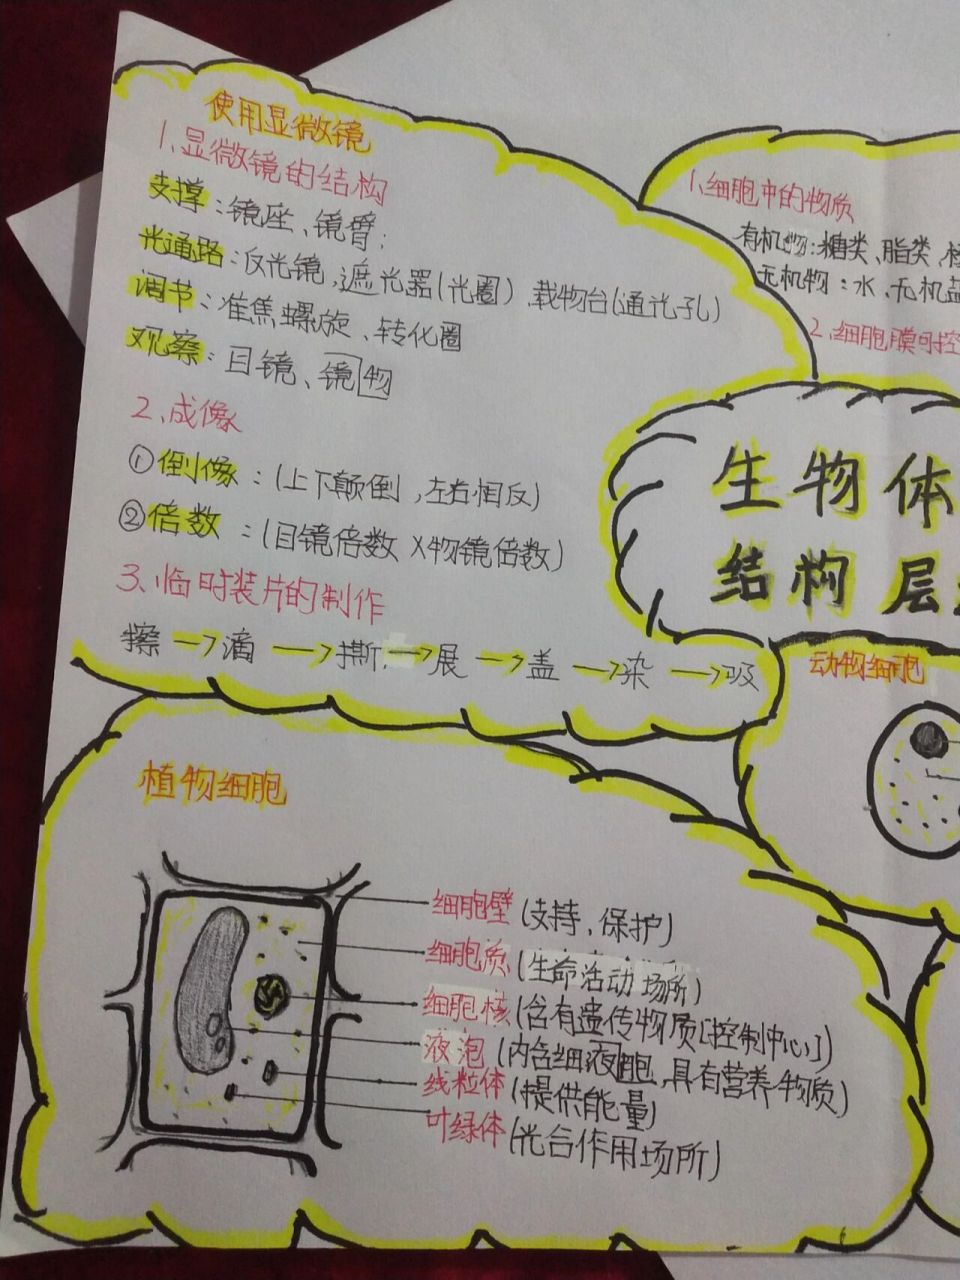 使用显微镜
1、显微镜的结构
支撑：镜座、镜臂；
光通路：反光镜，遮光器(光圈)、载物台(通光孔)
调节：准焦螺旋、转化圈
观察：目镜、镜物
2、成像
①倒像：(上下颠倒，左右相反)
②倍数：(目镜倍数X物镜倍数)
3、临时装片的制作
擦→滴→撕→展→盖→染→吸
1、细胞中的物质
有机物：糖类、脂类、
无机物：水、无机盐
2、细胞膜可控
生物体
结构层
动物细胞
植物细胞
细胞壁(支持、保护)
细胞质(生命活动场所)
细胞核(含有遗传物质[控制中心])
液泡(内含细液胞，具有营养物质)
线粒体(提供能量)
叶绿体(光合作用场所)